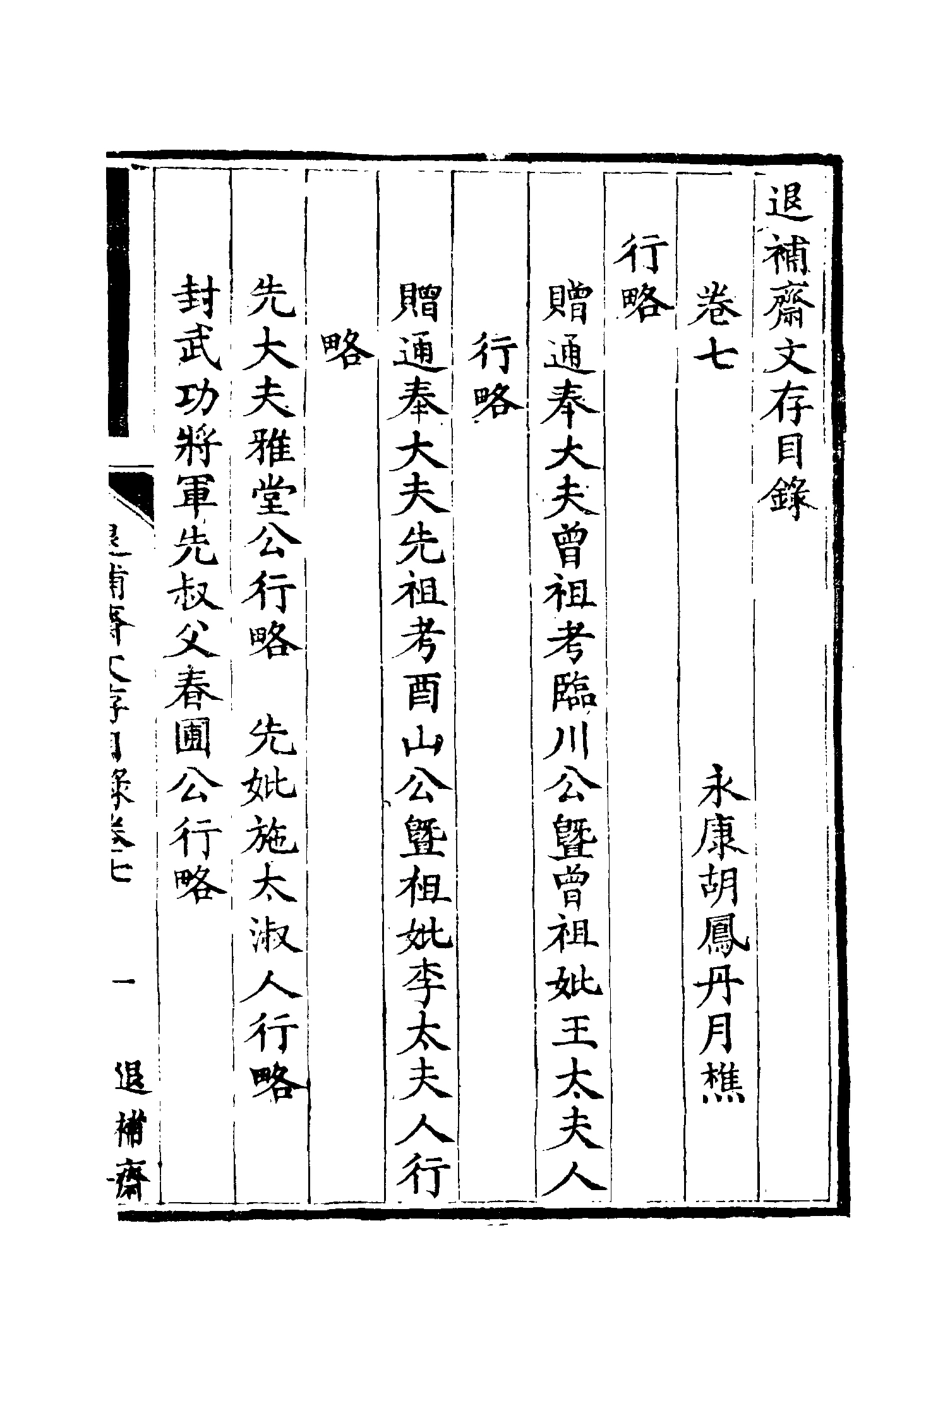 退補齋文存目錄
卷七　永康胡鳳丹月樵
行略
贈通奉大夫曾祖考臨川公暨曾祖妣王太夫人
行略
贈通奉大夫先祖考酉山公暨祖妣李太夫人行
略
先大夫雅堂公行略　先妣施太淑人行略
封武功將軍先叔父春圃公行略
退補齋文存目錄卷七　一　退補齋